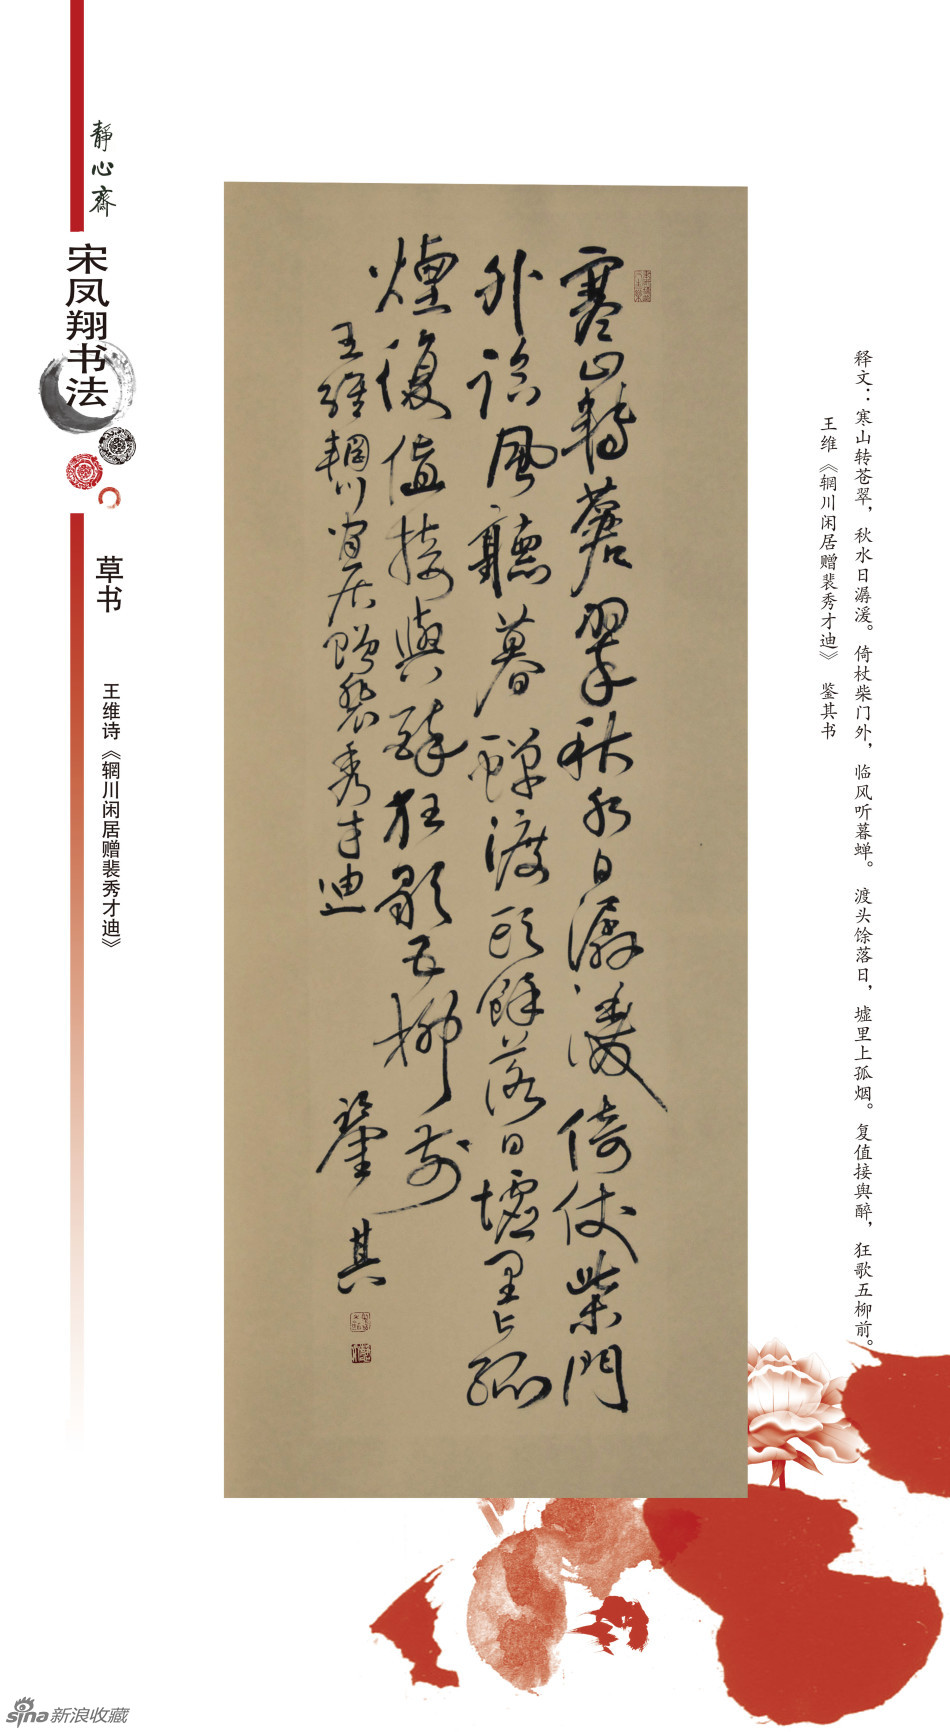 静心斋
宋凤翔书法
草书
王维诗《辋川闲居赠裴秀才迪》
释文：寒山转苍翠，秋水日潺湲。倚杖柴门外，临风听暮蝉。渡头馀落日，墟里上孤烟。复值接舆醉，狂歌五柳前。
王维《辋川闲居赠裴秀才迪》 鉴其书
寒山轉蒼翠秋水日潺湲倚仗柴門
外臨風聽暮蟬渡頭餘落日墟里上孤
煙復值接輿醉狂歌五柳前
王維輞川閒居贈裴秀才迪 鑒其
sina新浪收藏